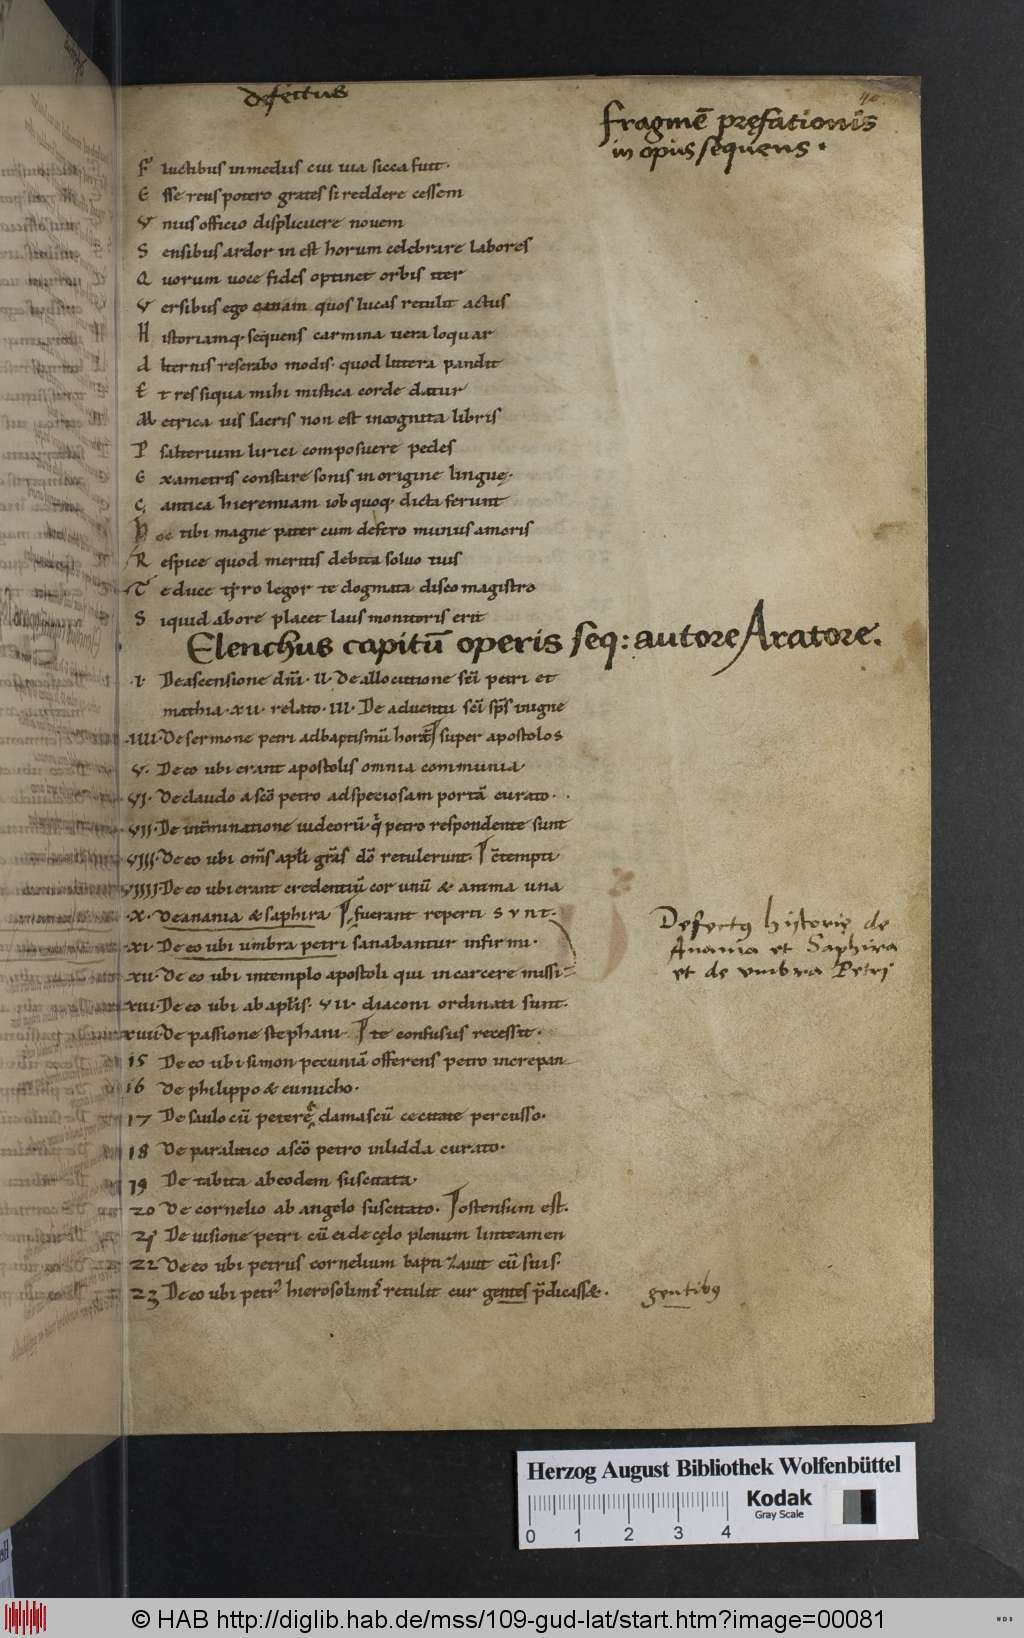 defectus
40
fragmē pręfationis
in opus sequens.
F luctibus inmediis cui uia sicca fuit.
E sse reus potero grates si reddere cessem
V nius officio displicuere nouem
S ensibus ardor in est horum celebrare labores
Q uorum uoce fides optinet orbis iter
V ersibus ego canam quos lucas retulit actus
H istoriamq. sequens carmina uera loquar
A lternis reserabo modis. quod littera pandit
E t res siqua mihi mistica corde datur
M etrica uis sacris non est incognita libris
P salterium lirici composuere pedes
E xametris constare sonis in origine linguę.
C antica hieremiam iob quoq. dicta ferunt
H oc tibi magne pater cum defero munus amoris
R espice quod meritis debita soluo tuis
T e duce tyro legor te dogmata disco magistro
S iquid abore placet laus monitoris erit
Elenchus capitū operis seq: autore Aratore.
.I. De ascensione dnī. II. De allocutione scī petri et
mathia. XII. relato. III. De aduentu scī sps̄ inigne
.IIII. De sermone petri ad baptismū hort̄ super apostolos
V. De eo ubi erant apostolis omnia communia
VI. De claudo a scō petro ad speciosam portā curato.
VII. De int̄minatione iudeorū. q̄ petro respondente sunt
VIII. De eo ubi om̄s apłi grās dō retulerunt. c̄tempti
VIIII. De eo ubi erant credentiū cor unū & anima una
.X. De anania & saphira fuerant reperti sunt.
XI. De eo ubi umbra petri sanabantur infirmi.
XII. De eo ubi in templo apostoli qui in carcere missi
XIII. De eo ubi ab apłis. VII. diaconi ordinati sunt.
XIIII. De passione stephani. te confusus recessit.
15 De eo ubi simon pecuniā offerens petro increpan
16 De philippo & eunucho.
17 De saulo cū peterē damascū cecitate percusso.
18 De paralitico a scō petro in lidda curato.
19 De tabita ab eodem suscitata.
20 De cornelio ab angelo suscitato. ostensum est.
21 De uisione petri cū ei de cęlo plenum linteamen
22 De eo ubi petrus cornelium baptizauit cū suis.
23 De eo ubi petr᾿ hierosolimit᾿ retulit cur gentes p̄dicass&.
Defectus historię de
Anania et Saphira
et de umbra Petri
gentibus
Herzog August Bibliothek Wolfenbüttel
Kodak
Gray Scale
0 1 2 3 4
© HAB http://diglib.hab.de/mss/109-gud-lat/start.htm?image=00081
WDB